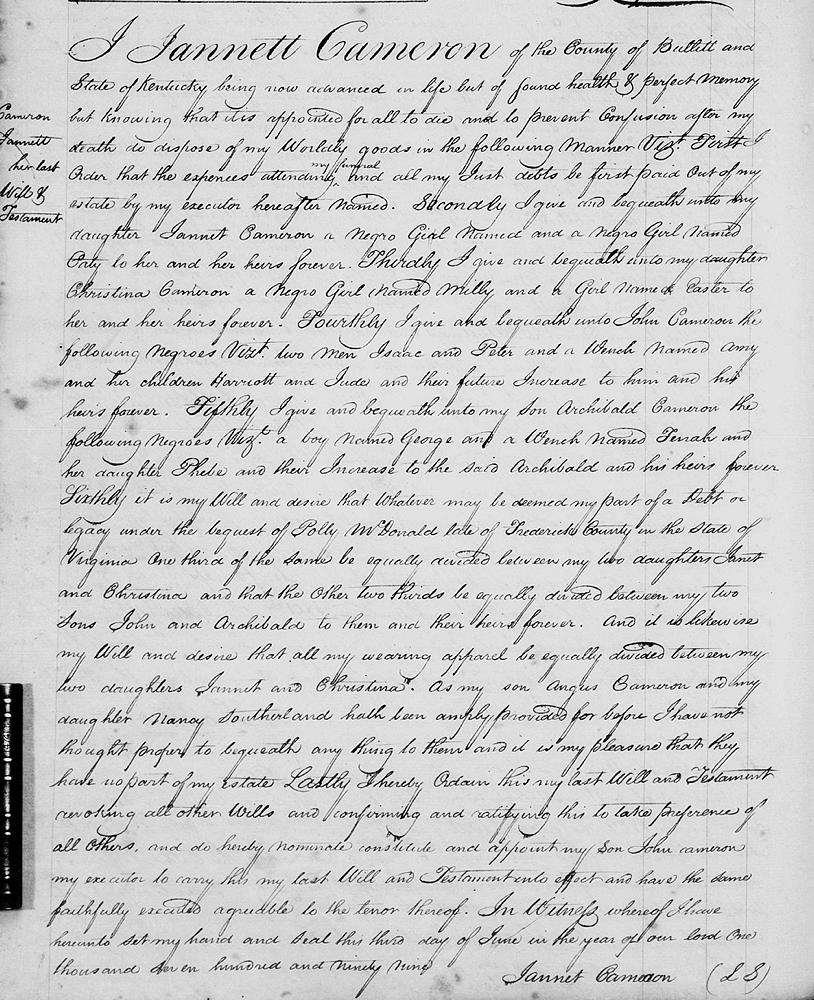 I Jannett Cameron of the County of Bullitt and
State of Kentucky being now advanced in life but of sound health & perfect Memory
but knowing that it is appointed for all to die and to prevent Confusion after my
death do dispose of my Worldly goods in the following Manner Vizt. First I
Order that the expences attending my funeral and all my Just debts be first paid out of my
estate by my executor hereafter Named. Secondly I give and bequeath unto my
daughter Jannet Cameron a Negro Girl Named and a Negro Girl Named
Caty to her and her heirs forever. Thirdly I give and bequeath unto my daughter
Christina Cameron a Negro Girl Named Milly and a Girl Named Easter to
her and her heirs forever. Fourthly I give and bequeath unto John Cameron the
following Negroes Vizt. two Men Isaac and Peter and a Wench Named Amy
and her children Harriott and Jude and their future Increase to him and his
heirs forever. Fifthly I give and bequeath unto my Son Archibald Cameron the
following Negroes Vizt. a boy Named George and a Wench Named Tenah and
her daughter Phebe and their Increase to the said Archibald and his heirs forever
Sixthly it is my Will and desire that Whatever may be deemed my part of a Debt or
legacy under the bequest of Polly McDonald late of Frederick County in the State of
Virginia One third of the same be equally divided between my two daughters Janet
and Christina and that the Other two thirds be equally divided between my two
Sons John and Archibald to them and their heirs forever. And it is likewise
my Will and desire that all my wearing apparel be equally divided between my
two daughters Jannet and Christina. As my son Angus Cameron and my
daughter Nancy Southerland hath been amply provided for before I have not
thought proper to bequeath any thing to them and it is my pleasure that they
have no part of my estate Lastly I hereby Ordain this my last Will and Testament
revoking all other Wills and confirming and ratifying this to take preference of
all Others, and do hereby nominate constitute and appoint my Son John Cameron
my executor to carry this my last Will and Testament into effect and have the same
faithfully executed agreeable to the tenor thereof. In Witness whereof I have
hereunto set my hand and Seal this third day of June in the year of our lord One
thousand seven hundred and Ninety Nine
Jannet Cameron (L S)
Cameron
Jannett
her last
Will &
Testament